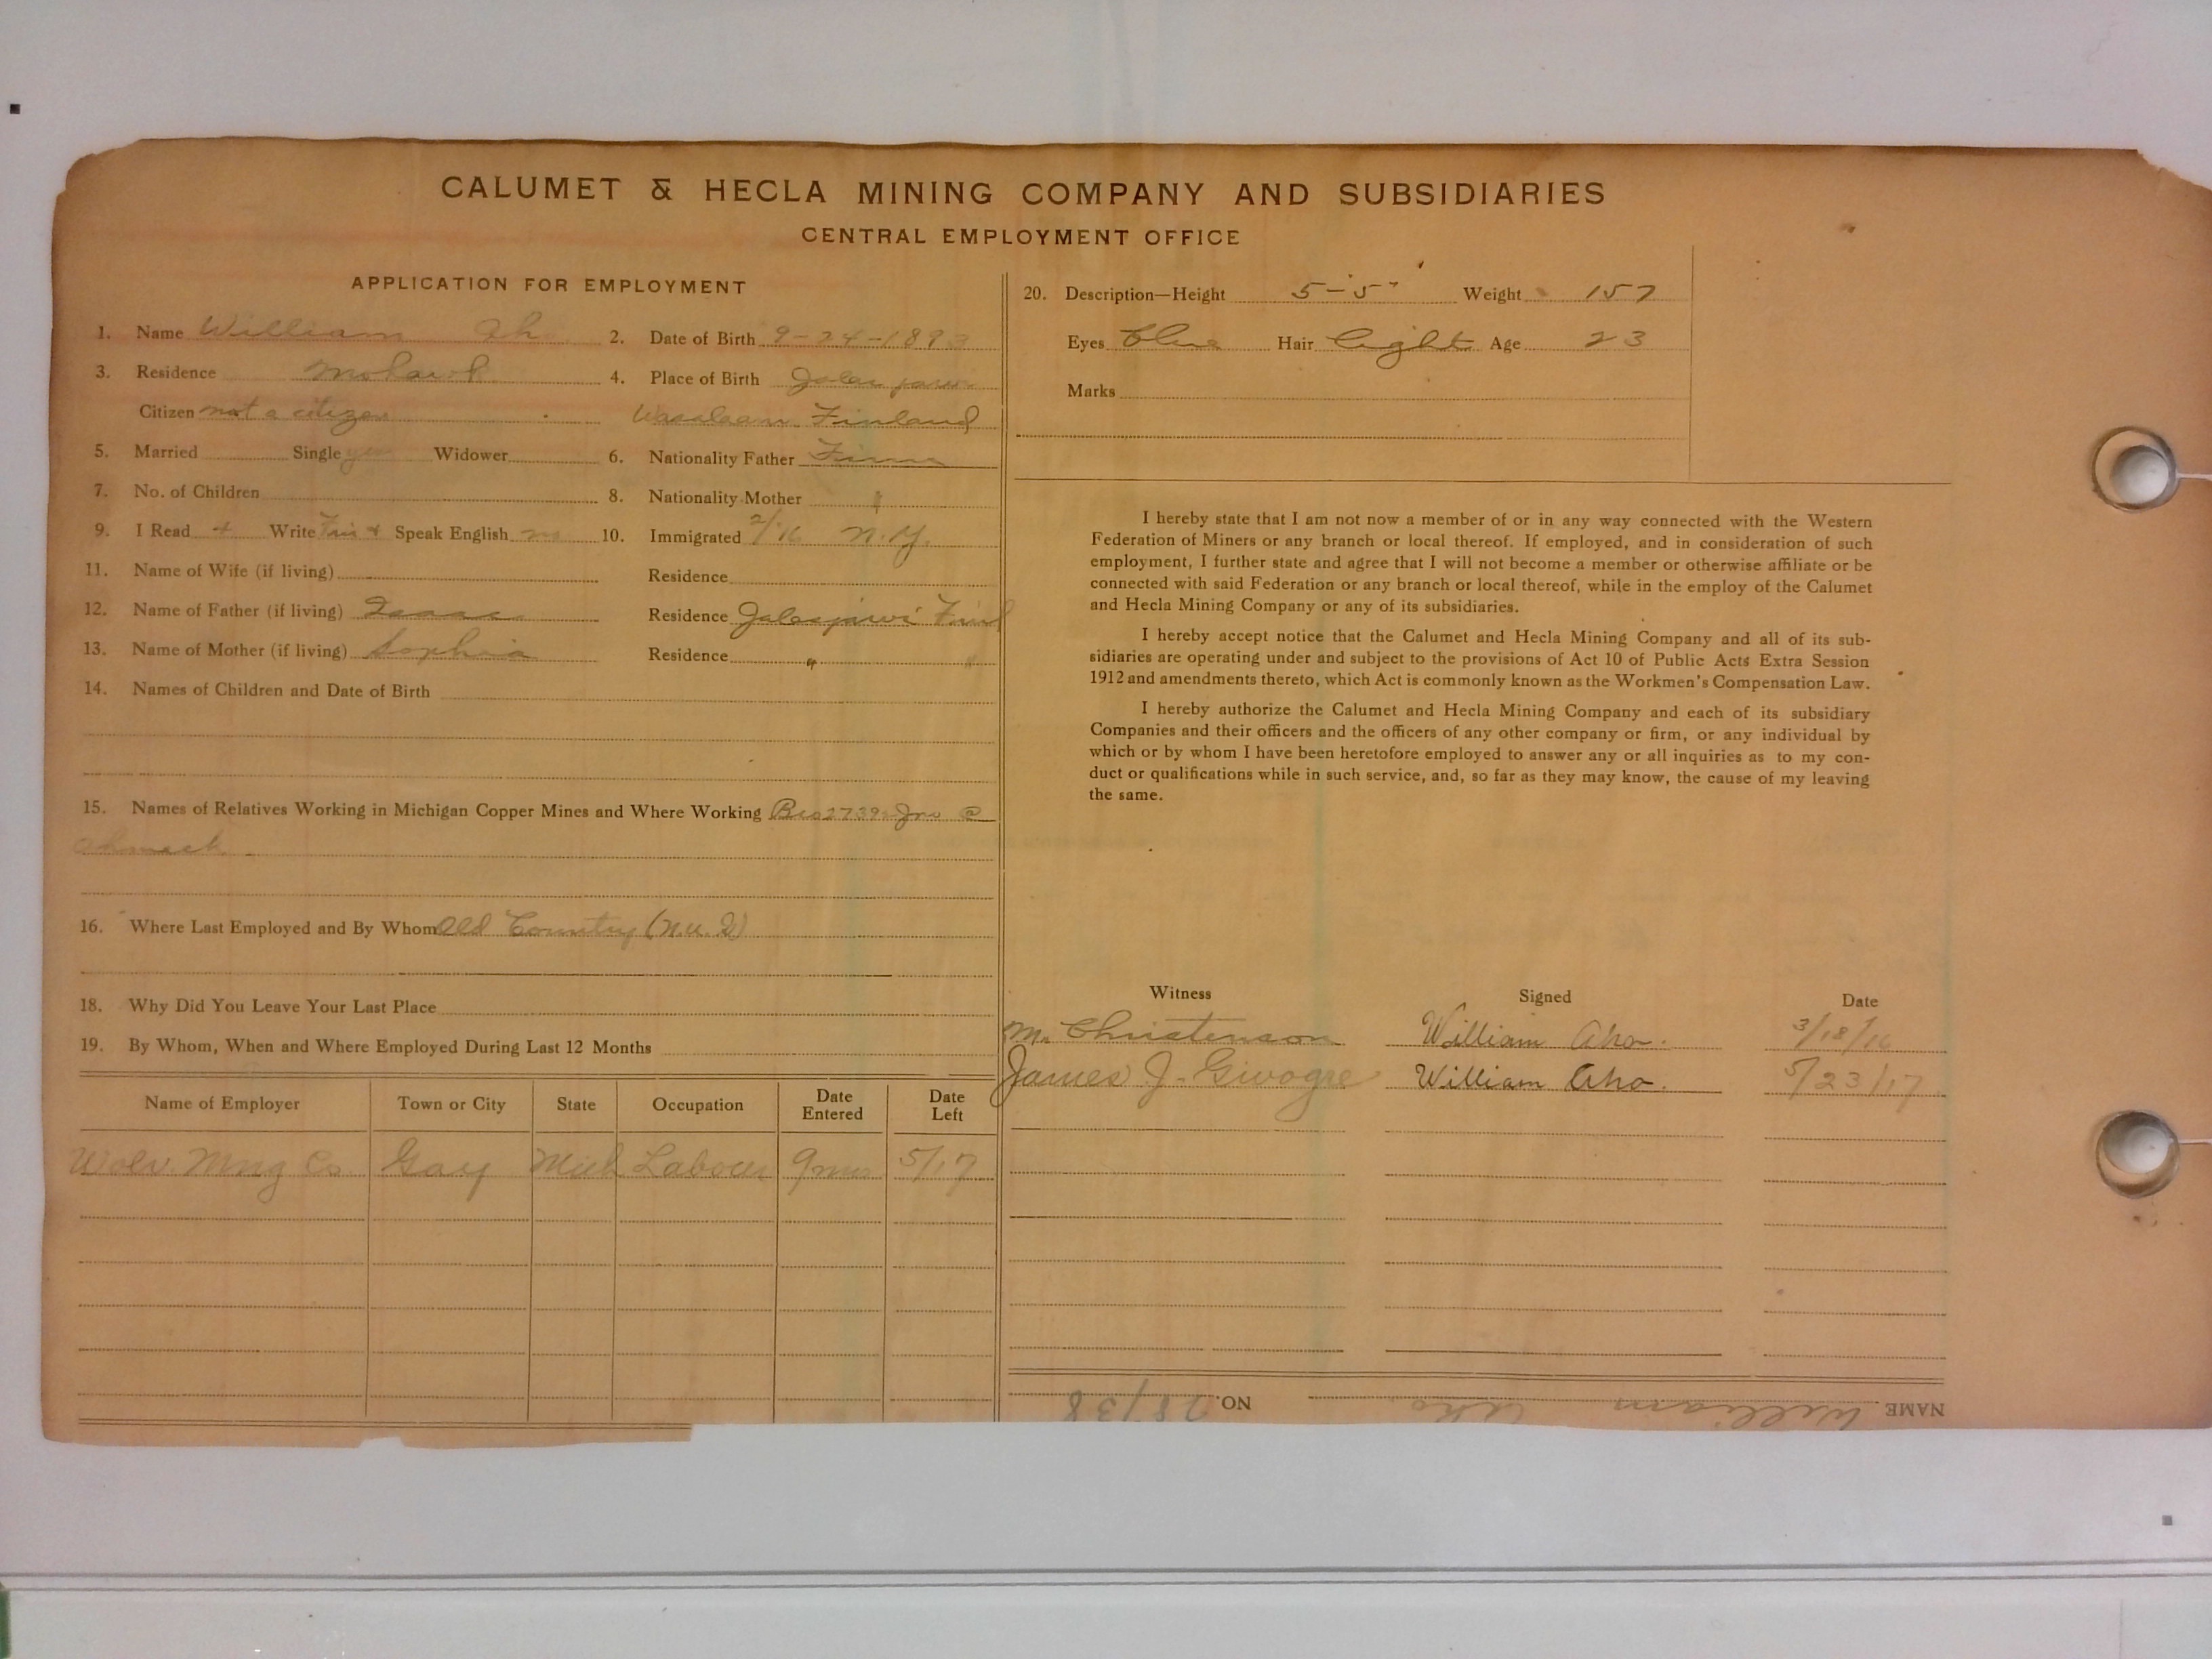 CALUMET & HECLA MINING COMPANY AND SUBSIDIARIES
CENTRAL EMPLOYMENT OFFICE
APPLICATION FOR EMPLOYMENT
1. Name William Ah 2. Date of Birth 9-24-1893
3. Residence Mohawk 4. Place of Birth
Citizen not a citizen Finland
5. Married Single yes Widower 6. Nationality Father Finn
7. No. of Children 8. Nationality Mother "
9. I Read + Write Fin + Speak English no 10. Immigrated 2/16 N.Y.
11. Name of Wife (if living) Residence
12. Name of Father (if living) Isaac Residence Jalasjarvi Finl
13. Name of Mother (if living) Sophia Residence " "
14. Names of Children and Date of Birth
15. Names of Relatives Working in Michigan Copper Mines and Where Working Bro 2739 Jno @
Ahmeek
16. Where Last Employed and By Whom Old Country
18. Why Did You Leave Your Last Place
19. By Whom, When and Where Employed During Last 12 Months
Name of Employer Town or City State Occupation Date Entered Date Left
Wolv. Mng Co Gay Mich Labour 9 mos 5/17
20. Description—Height 5-5" Weight 157
Eyes Blue Hair light Age 23
Marks
I hereby state that I am not now a member of or in any way connected with the Western
Federation of Miners or any branch or local thereof. If employed, and in consideration of such
employment, I further state and agree that I will not become a member or otherwise affiliate or be
connected with said Federation or any branch or local thereof, while in the employ of the Calumet
and Hecla Mining Company or any of its subsidiaries.
I hereby accept notice that the Calumet and Hecla Mining Company and all of its sub-
sidiaries are operating under and subject to the provisions of Act 10 of Public Acts Extra Session
1912 and amendments thereto, which Act is commonly known as the Workmen's Compensation Law.
I hereby authorize the Calumet and Hecla Mining Company and each of its subsidiary
Companies and their officers and the officers of any other company or firm, or any individual by
which or by whom I have been heretofore employed to answer any or all inquiries as to my con-
duct or qualifications while in such service, and, so far as they may know, the cause of my leaving
the same.
Witness Signed Date
M. Christenson William Aho. 3/18/16
James J. Givogre William Aho. 5/23/17
NAME William Aho. NO. 28138